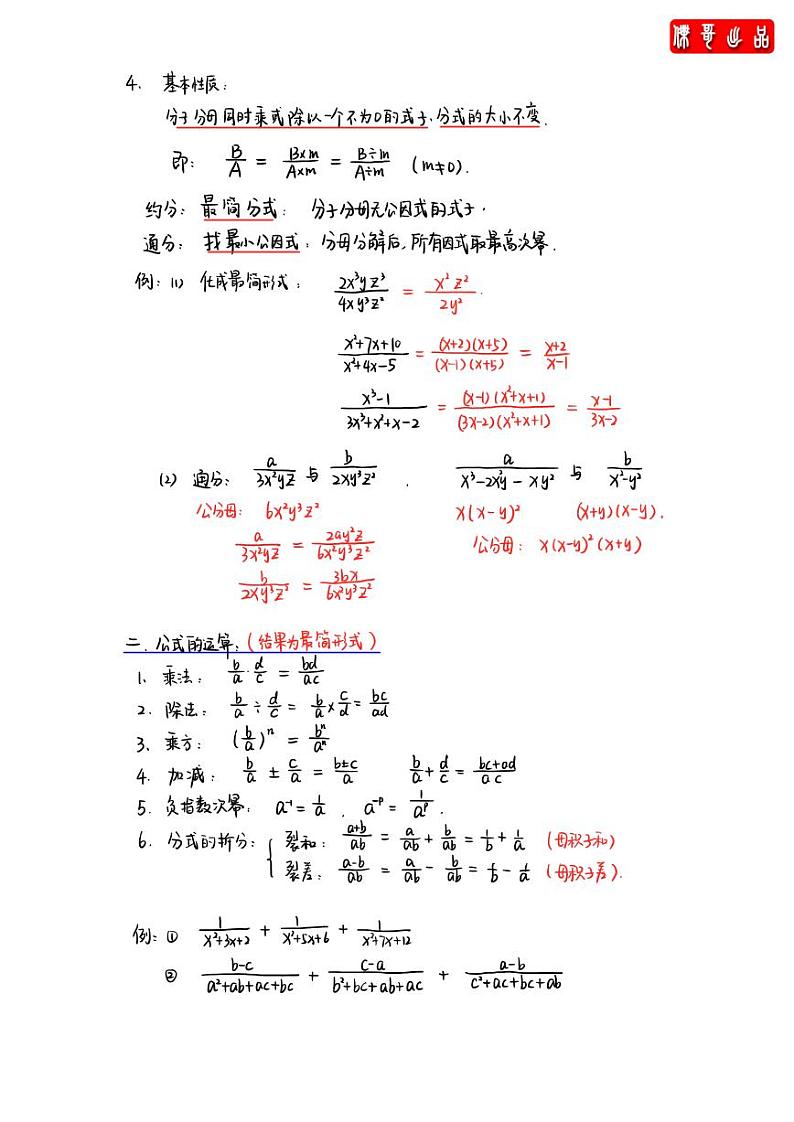 傑哥出品
4. 基本性质:
分子分母同时乘或除以一个不为0的式子,分式的大小不变.
即: B/A = B×m/A×m = B÷m/A÷m (m≠0).
约分: 最简分式: 分子分母无公因式的式子.
通分: 找最小公因式: 分母分解后,所有因式取最高次幂.
例: (1) 化成最简形式: 2x³yz³/4xy³z² = x²z²/2y².
x²+7x+10/x²+4x-5 = (x+2)(x+5)/(x-1)(x+5) = x+2/x-1
x³-1/3x³+x²+x-2 = (x-1)(x²+x+1)/(3x-2)(x²+x+1) = x-1/3x-2
(2) 通分: a/3x²yz 与 b/2xy³z² . a/x³-2x²y-xy² 与 b/x²-y²
公分母: 6x²y³z² x(x-y)² (x+y)(x-y).
a/3x²yz = 2ay²z/6x²y³z² 公分母: x(x-y)²(x+y)
b/2xy³z² = 3bx/6x²y³z²
二. 公式的运算: (结果为最简形式)
1. 乘法: b/a · d/c = bd/ac
2. 除法: b/a ÷ d/c = b/a × c/d = bc/ad
3. 乘方: (b/a)ⁿ = bⁿ/aⁿ
4. 加减: b/a ± c/a = b±c/a b/a + d/c = bc+ad/ac
5. 负指数次幂: a⁻¹ = 1/a . a⁻ᵖ = 1/aᵖ .
6. 分式的折分: { 裂和: a+b/ab = a/ab + b/ab = 1/b + 1/a (母积子和)
裂差: a-b/ab = a/ab - b/ab = 1/b - 1/a (母积子差).
例: ① 1/x²+3x+2 + 1/x²+5x+6 + 1/x²+7x+12
② b-c/a²+ab+ac+bc + c-a/b²+bc+ab+ac + a-b/c²+ac+bc+ab